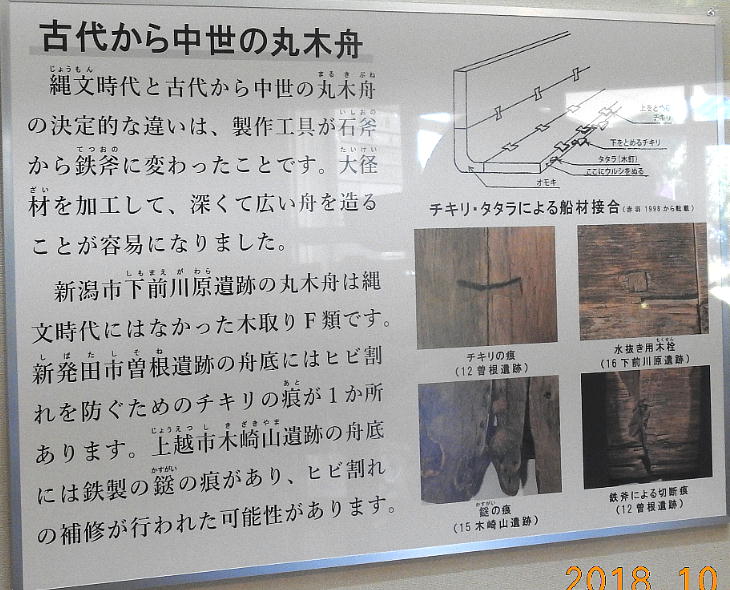 古代から中世の丸木舟
じょうもん まるきぶね
縄文時代と古代から中世の丸木舟
いしおの
の決定的な違いは、製作工具が石斧
てつおの たいけい
から鉄斧に変わったことです。大径
ざい
材を加工して、深くて広い舟を造る
ことが容易になりました。
しもまえがわら
新潟市下前川原遺跡の丸木舟は縄
文時代にはなかった木取りF類です。
しばたしそね
新発田市曽根遺跡の舟底にはヒビ割
あと
れを防ぐためのチキリの痕が1か所
じょうえつしきざきやま
あります。上越市木崎山遺跡の舟底
かすがい
には鉄製の鎹の痕があり、ヒビ割れ
の補修が行われた可能性があります。
上をとめる
チキリ
下をとめるチキリ
タタラ(木釘)
ここにウルシをぬる
オモキ
チキリ・タタラによる船材接合(赤羽 1998から転載)
チキリの痕
(12曽根遺跡)
もくせん
水抜き用木栓
(16下前川原遺跡)
かすがい
鎹の痕
(15木崎山遺跡)
鉄斧による切断痕
(12曽根遺跡)
2018 10